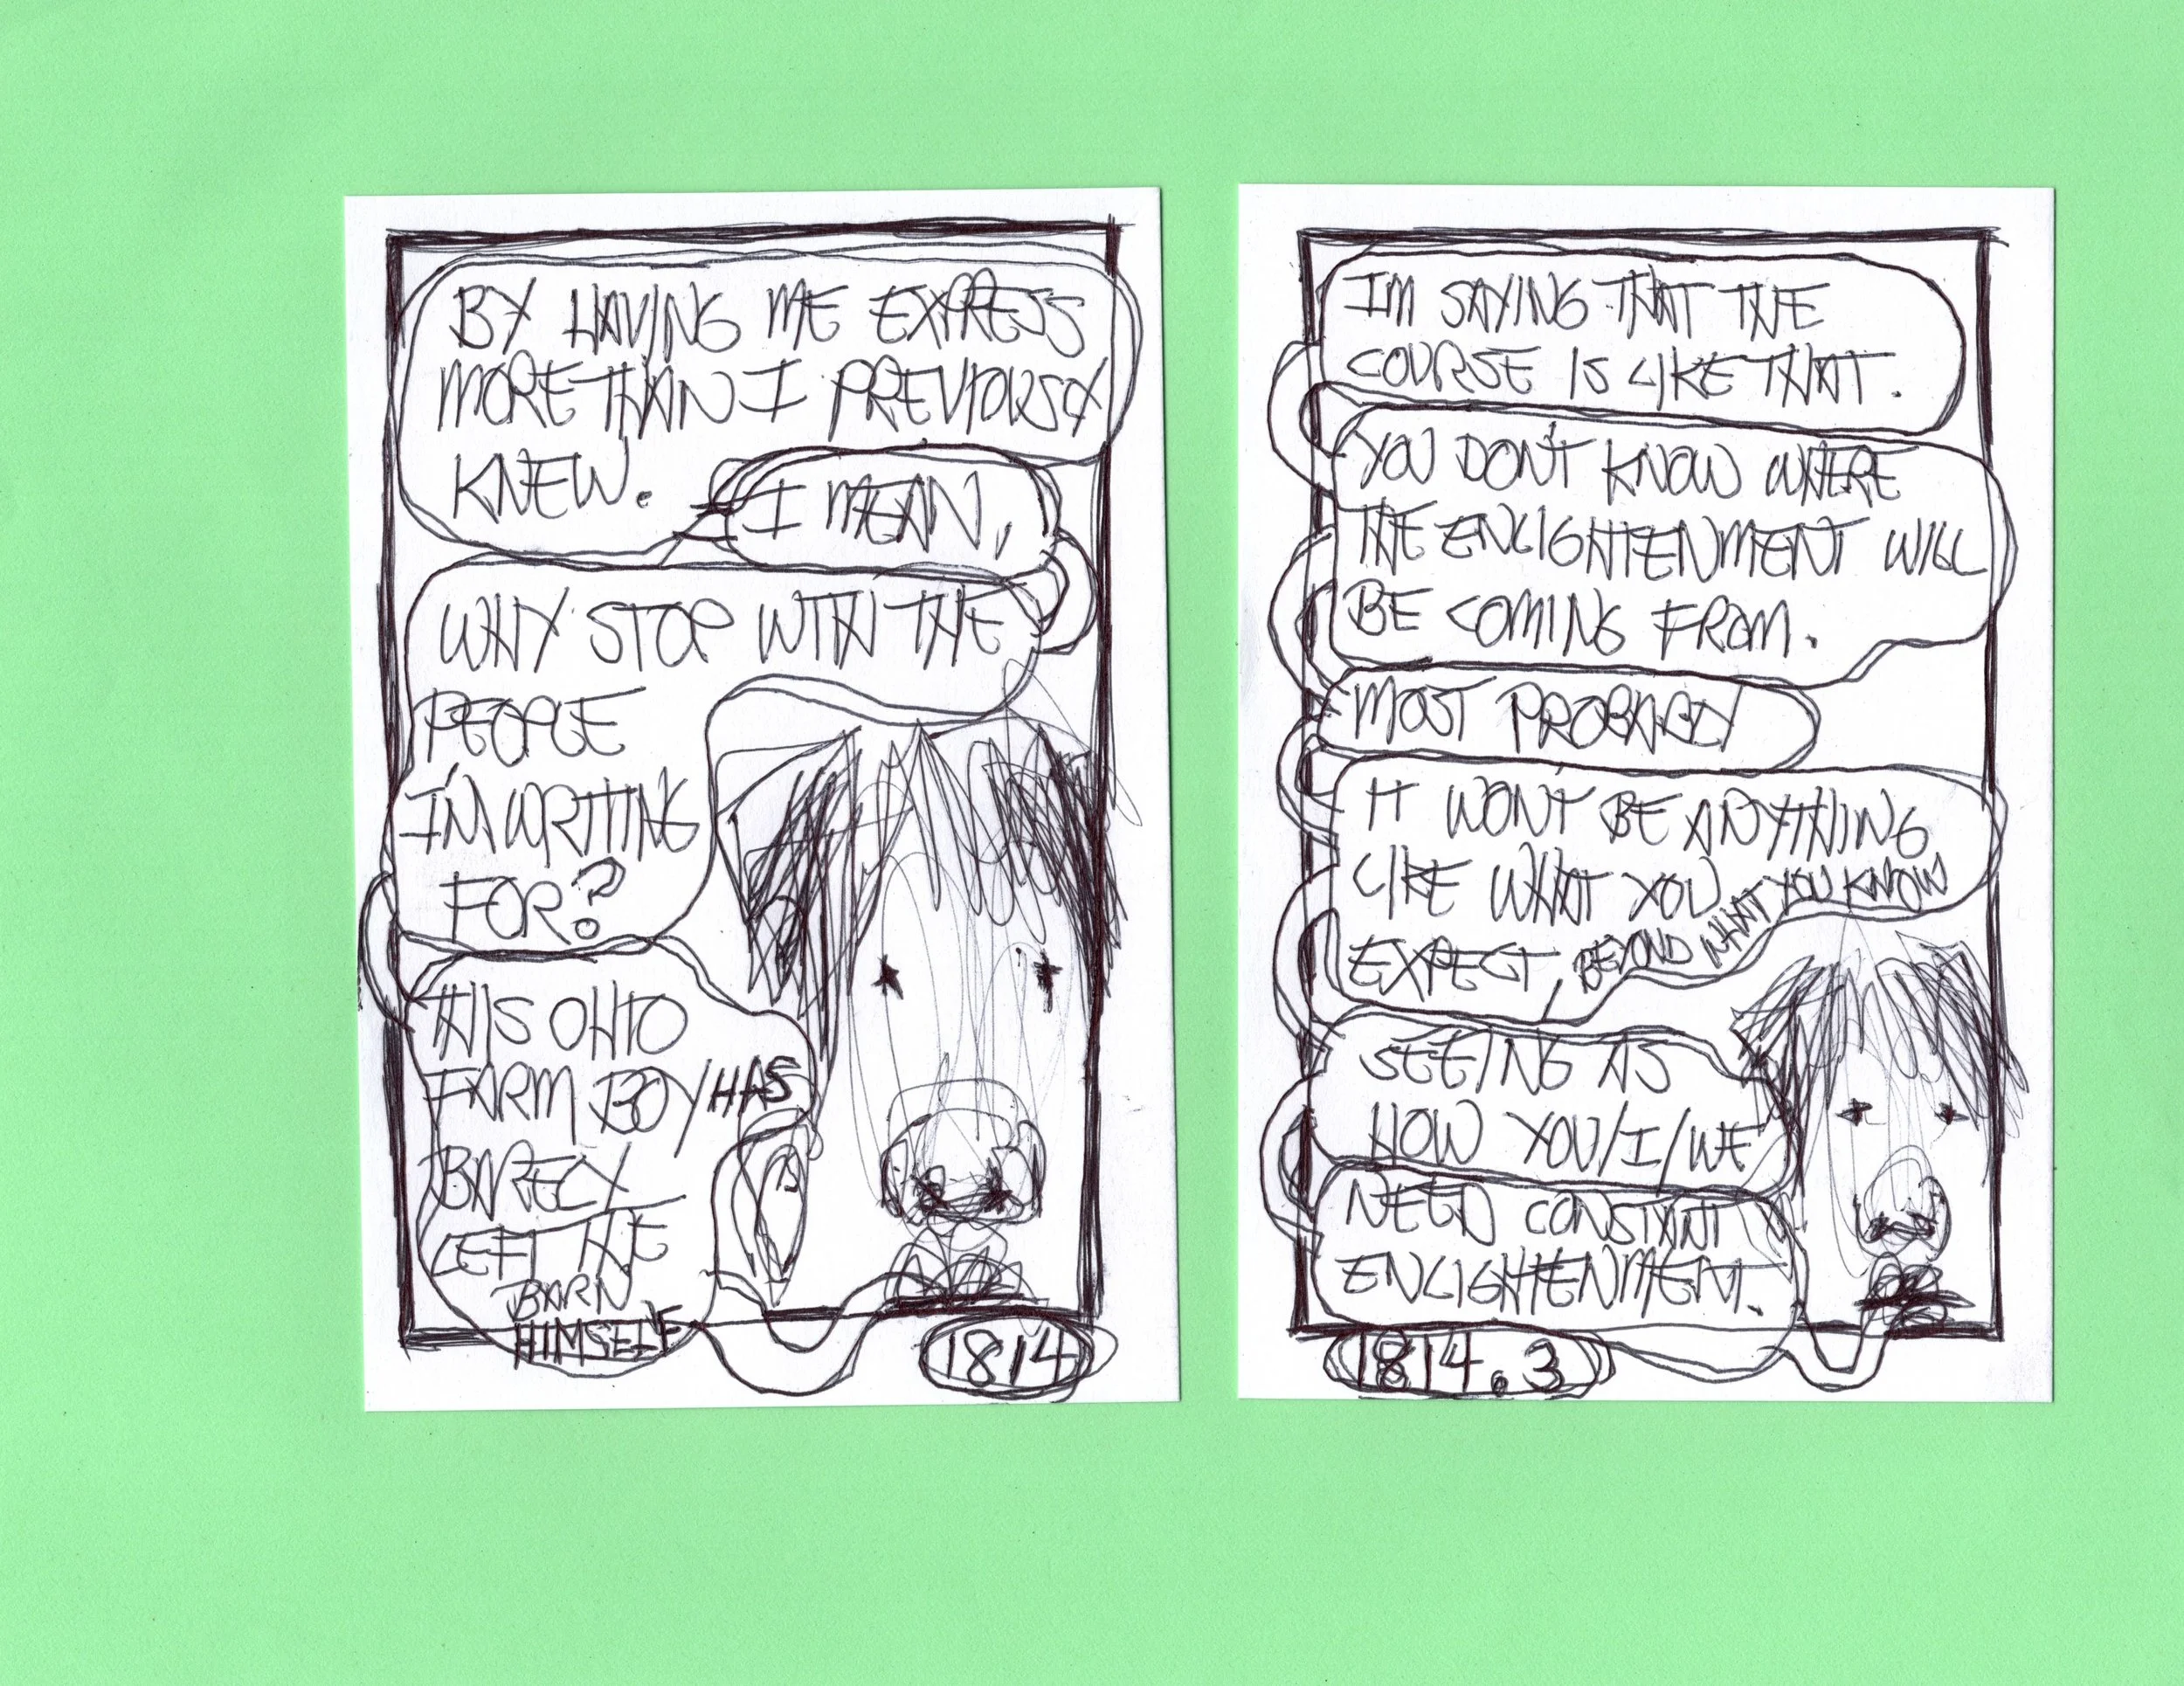 BY HAVING ME EXPRESS
MORE THAN I PREVIOUSLY
KNEW.
I MEAN,
WHY STOP WITH THE
PEOPLE
I'M WRITING
FOR?
THIS OHIO
FARM BOY HAS
BARELY
LEFT THE
BARN
HIMSELF
1814
IM SAYING THAT THE
COURSE IS LIKE THAT.
YOU DON'T KNOW WHERE
THE ENLIGHTENMENT WILL
BE COMING FROM.
MOST PROBABLY
IT WON'T BE ANYTHING
LIKE WHAT YOU
EXPECT, BEYOND WHAT YOU KNOW
SEEING AS
HOW YOU/I/WE
NEED CONSTANT
ENLIGHTENMENT.
1814.3